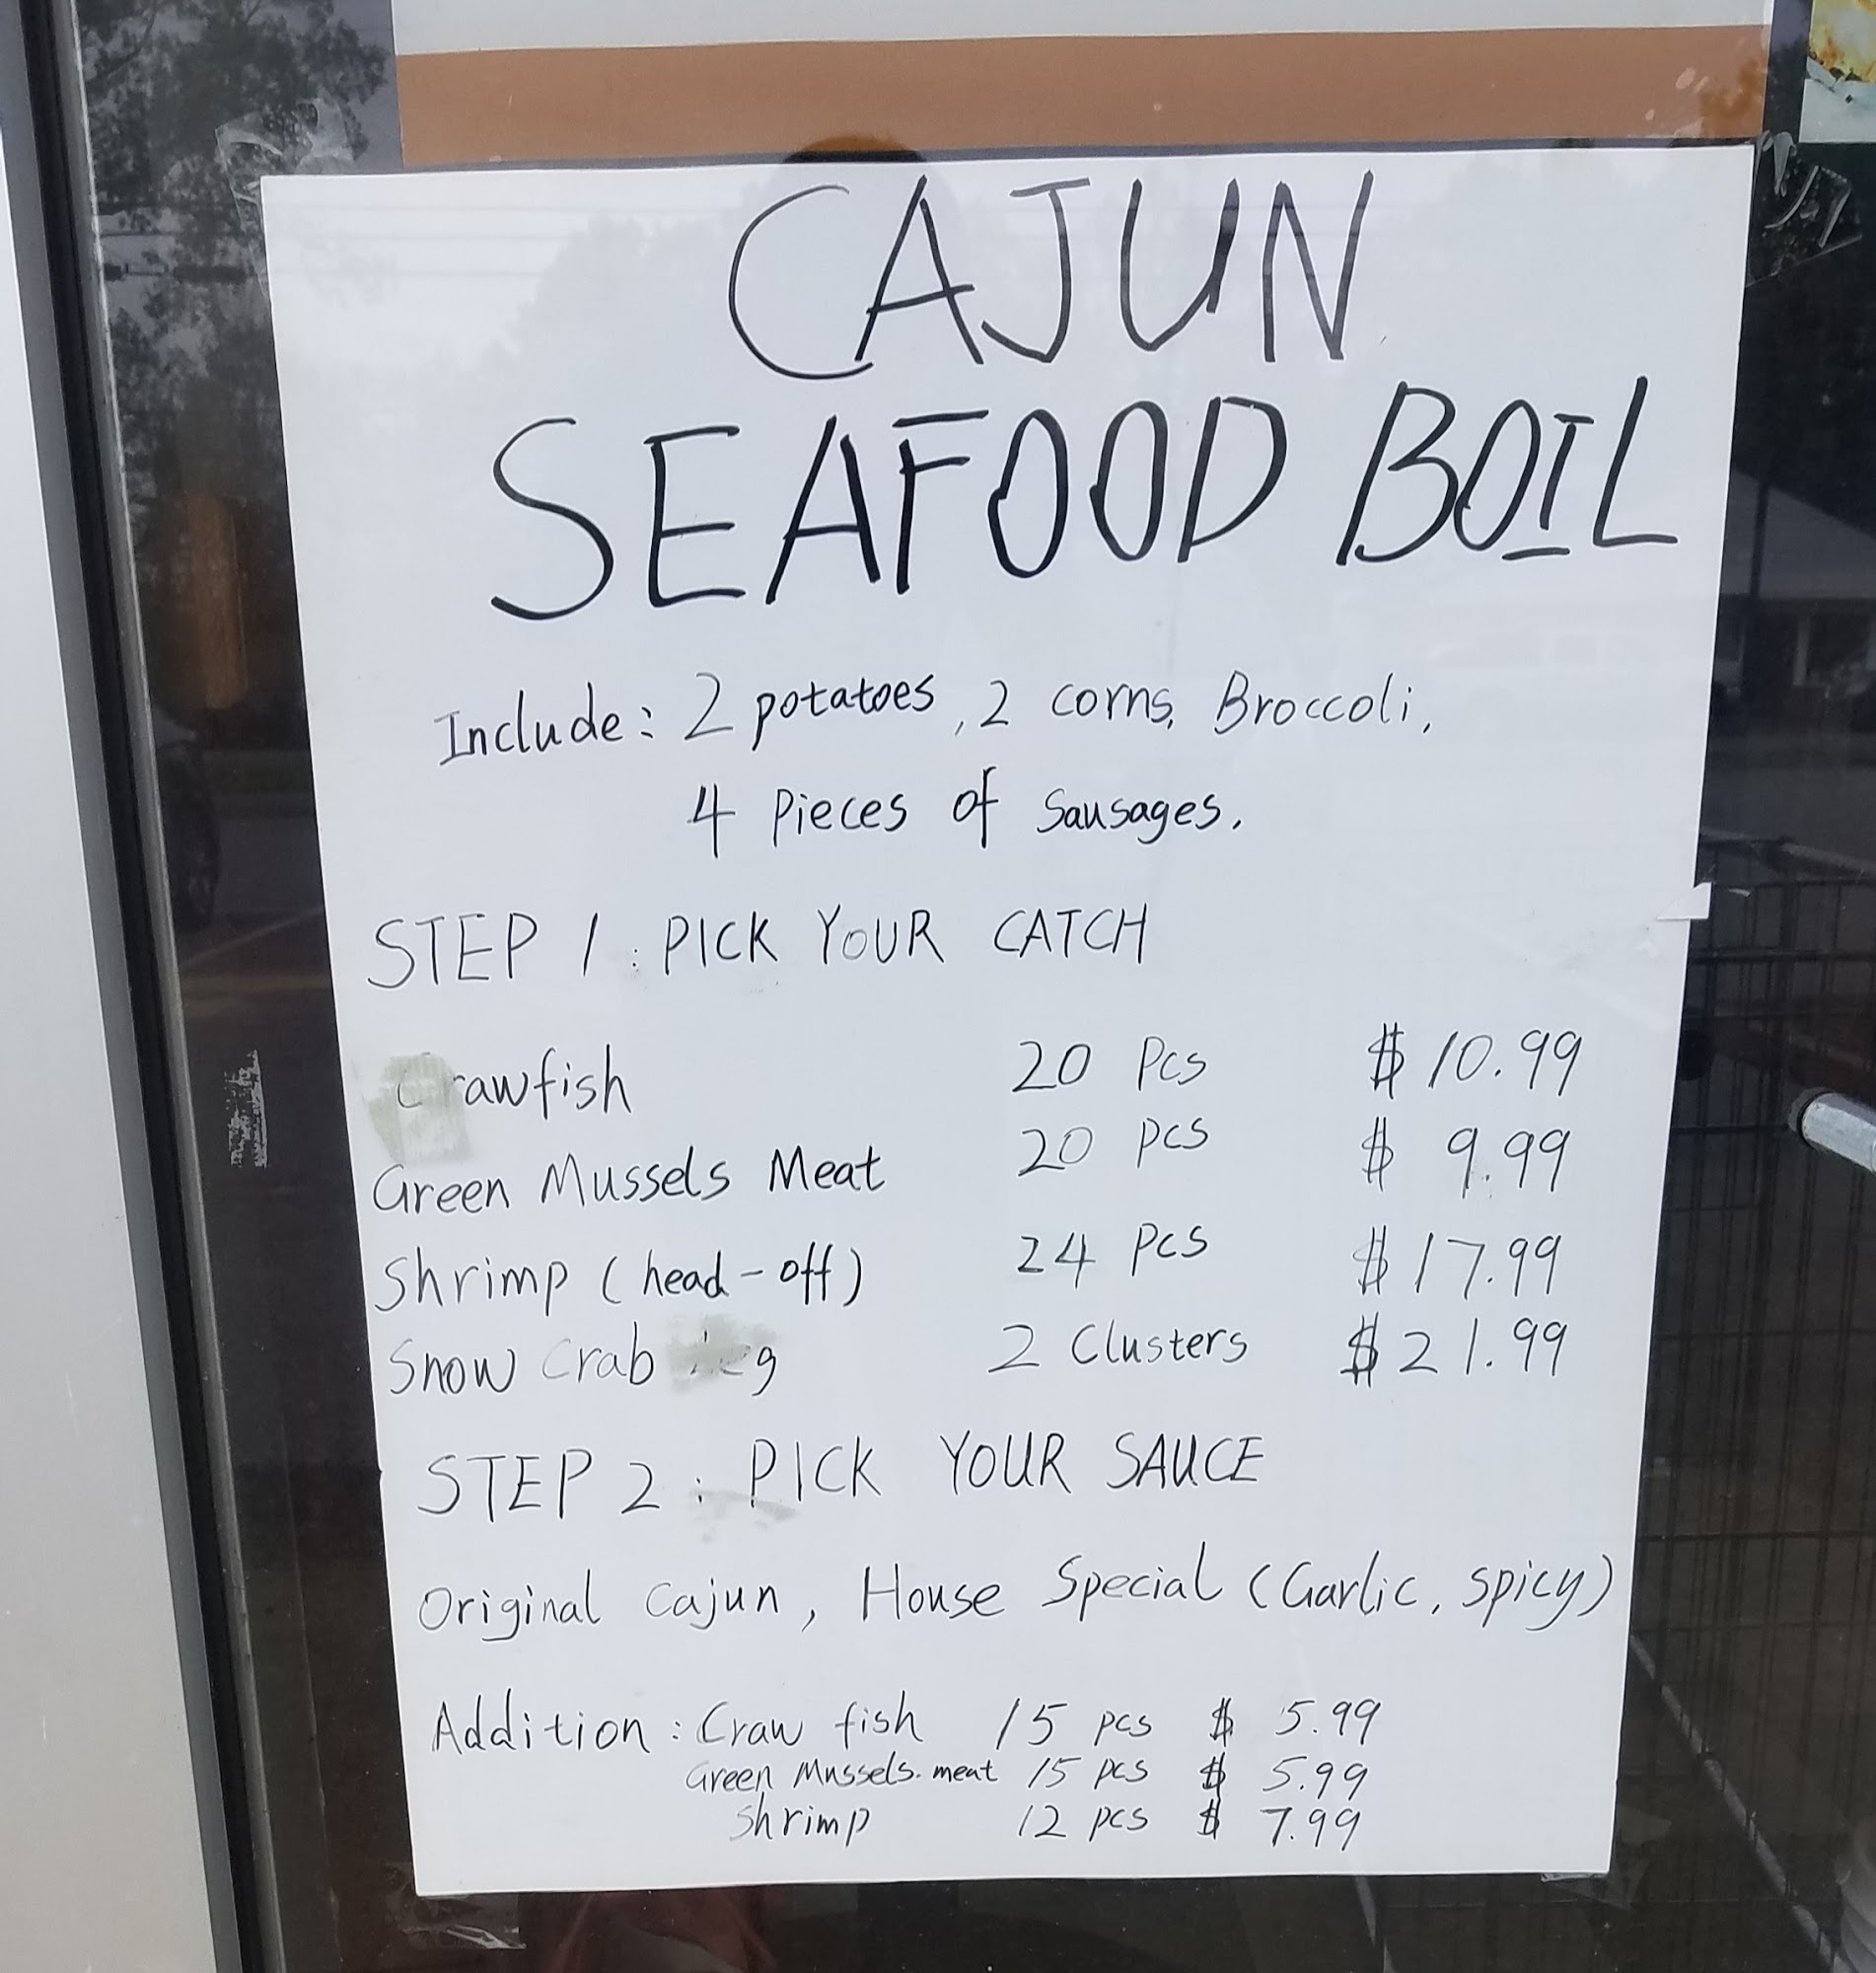 CAJUN
SEAFOOD BOIL
Include: 2 potatoes, 2 corns, Broccoli,
4 Pieces of Sausages.
STEP 1: PICK YOUR CATCH
Crawfish 20 Pcs $10.99
Green Mussels Meat 20 pcs $ 9.99
Shrimp (head-off) 24 Pcs $17.99
Snow Crab Leg 2 Clusters $21.99
STEP 2: PICK YOUR SAUCE
Original Cajun, House Special (Garlic, Spicy)
Addition: Craw fish 15 pcs $ 5.99
Green Mussels. meat 15 pcs $ 5.99
Shrimp 12 pcs $ 7.99